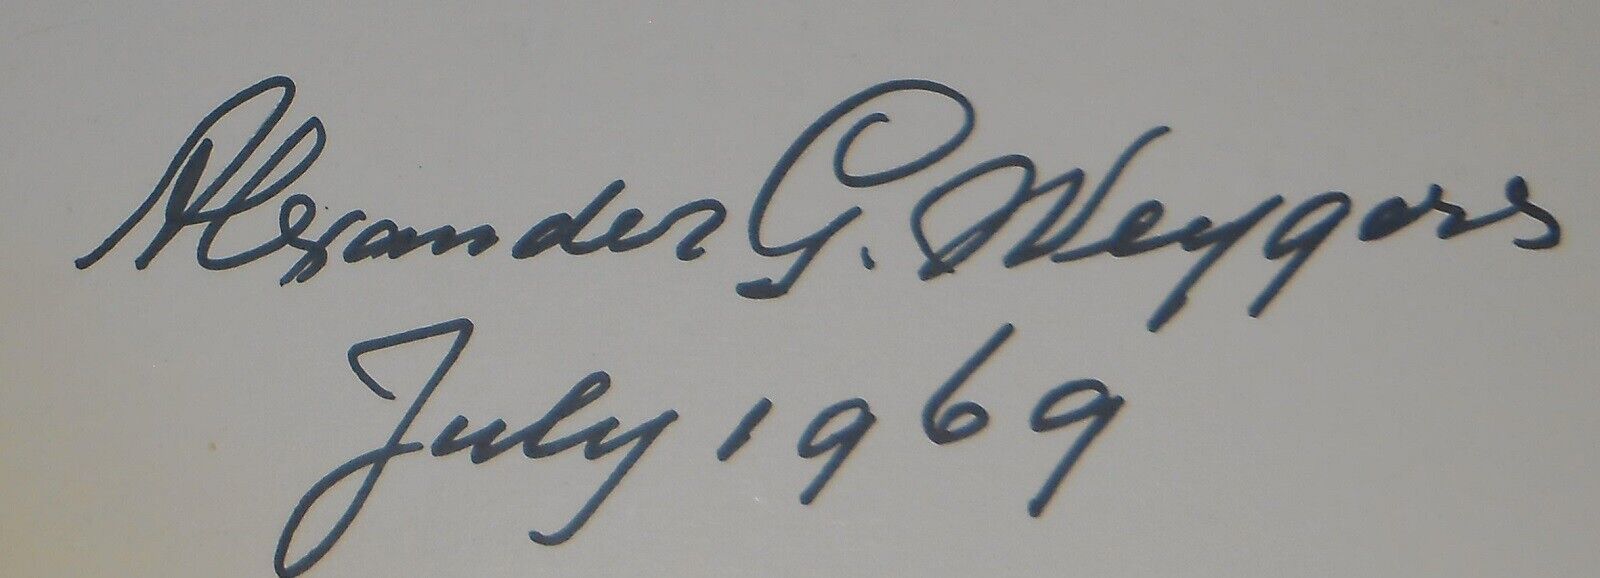 Alexander G. Weygers
July 1969